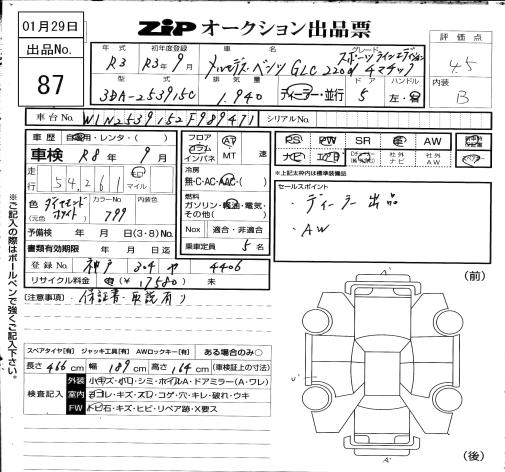 01月29日
ZIP オークション出品票
出品No.
87
評価点
4.5
内装
B
年式 初年度登録 車名 グレード
R3 R3年9月 メルセデス・ベンツ GLC 220d 4マチック スポーツラインエディション
型式 排気量 ドア ハンドル
3DA-253915C 1.940 ディーラー・並行 5 左・右
車台No. W1N2539152F989471
シリアルNo.
車歴 自家用・レンタ・( )
車検 R8年9月
走行 54,261 km マイル
色 ダイヤモンドホワイト
(元色)
カラーNo. 799
内装色
予備検 年 月 日(3・8)No.
書類有効期限 年 月 日迄
登録No. 神戸 304 や 4406
リサイクル料金 有 (¥ 17580) 未
フロア AT
コラム
インパネ MT 速
冷房
無・C・AC・AAC・( )
燃料
ガソリン・軽油・電気・
その他( )
Nox 適合・非適合
乗車定員 5名
PS PW SR 革 AW
ナビ エアB 社外ナビ 社外AW
※上記太枠内は標準装備品
セールスポイント
・ディーラー出品
・AW
(注意事項)・保証書・取説有り
※ご記入の際はボールペンで強くご記入下さい。
スペアタイヤ【有】 ジャッキ工具【有】 AWロックキー【有】 ある場合のみ○
長さ 466 cm 幅 189 cm 高さ 164 cm (車検証上の寸法)
検査記入
外装 小キズ・小凹・シミ・ホイルA・ドアミラー(A・ワレ)
室内 ヨゴレ・キズ・スレ・コゲ・穴・キレ・破れ・ウキ
FW トビ石・キズ・ヒビ・リペア跡・X要ス
(前)
A'
U'
A'
(後)